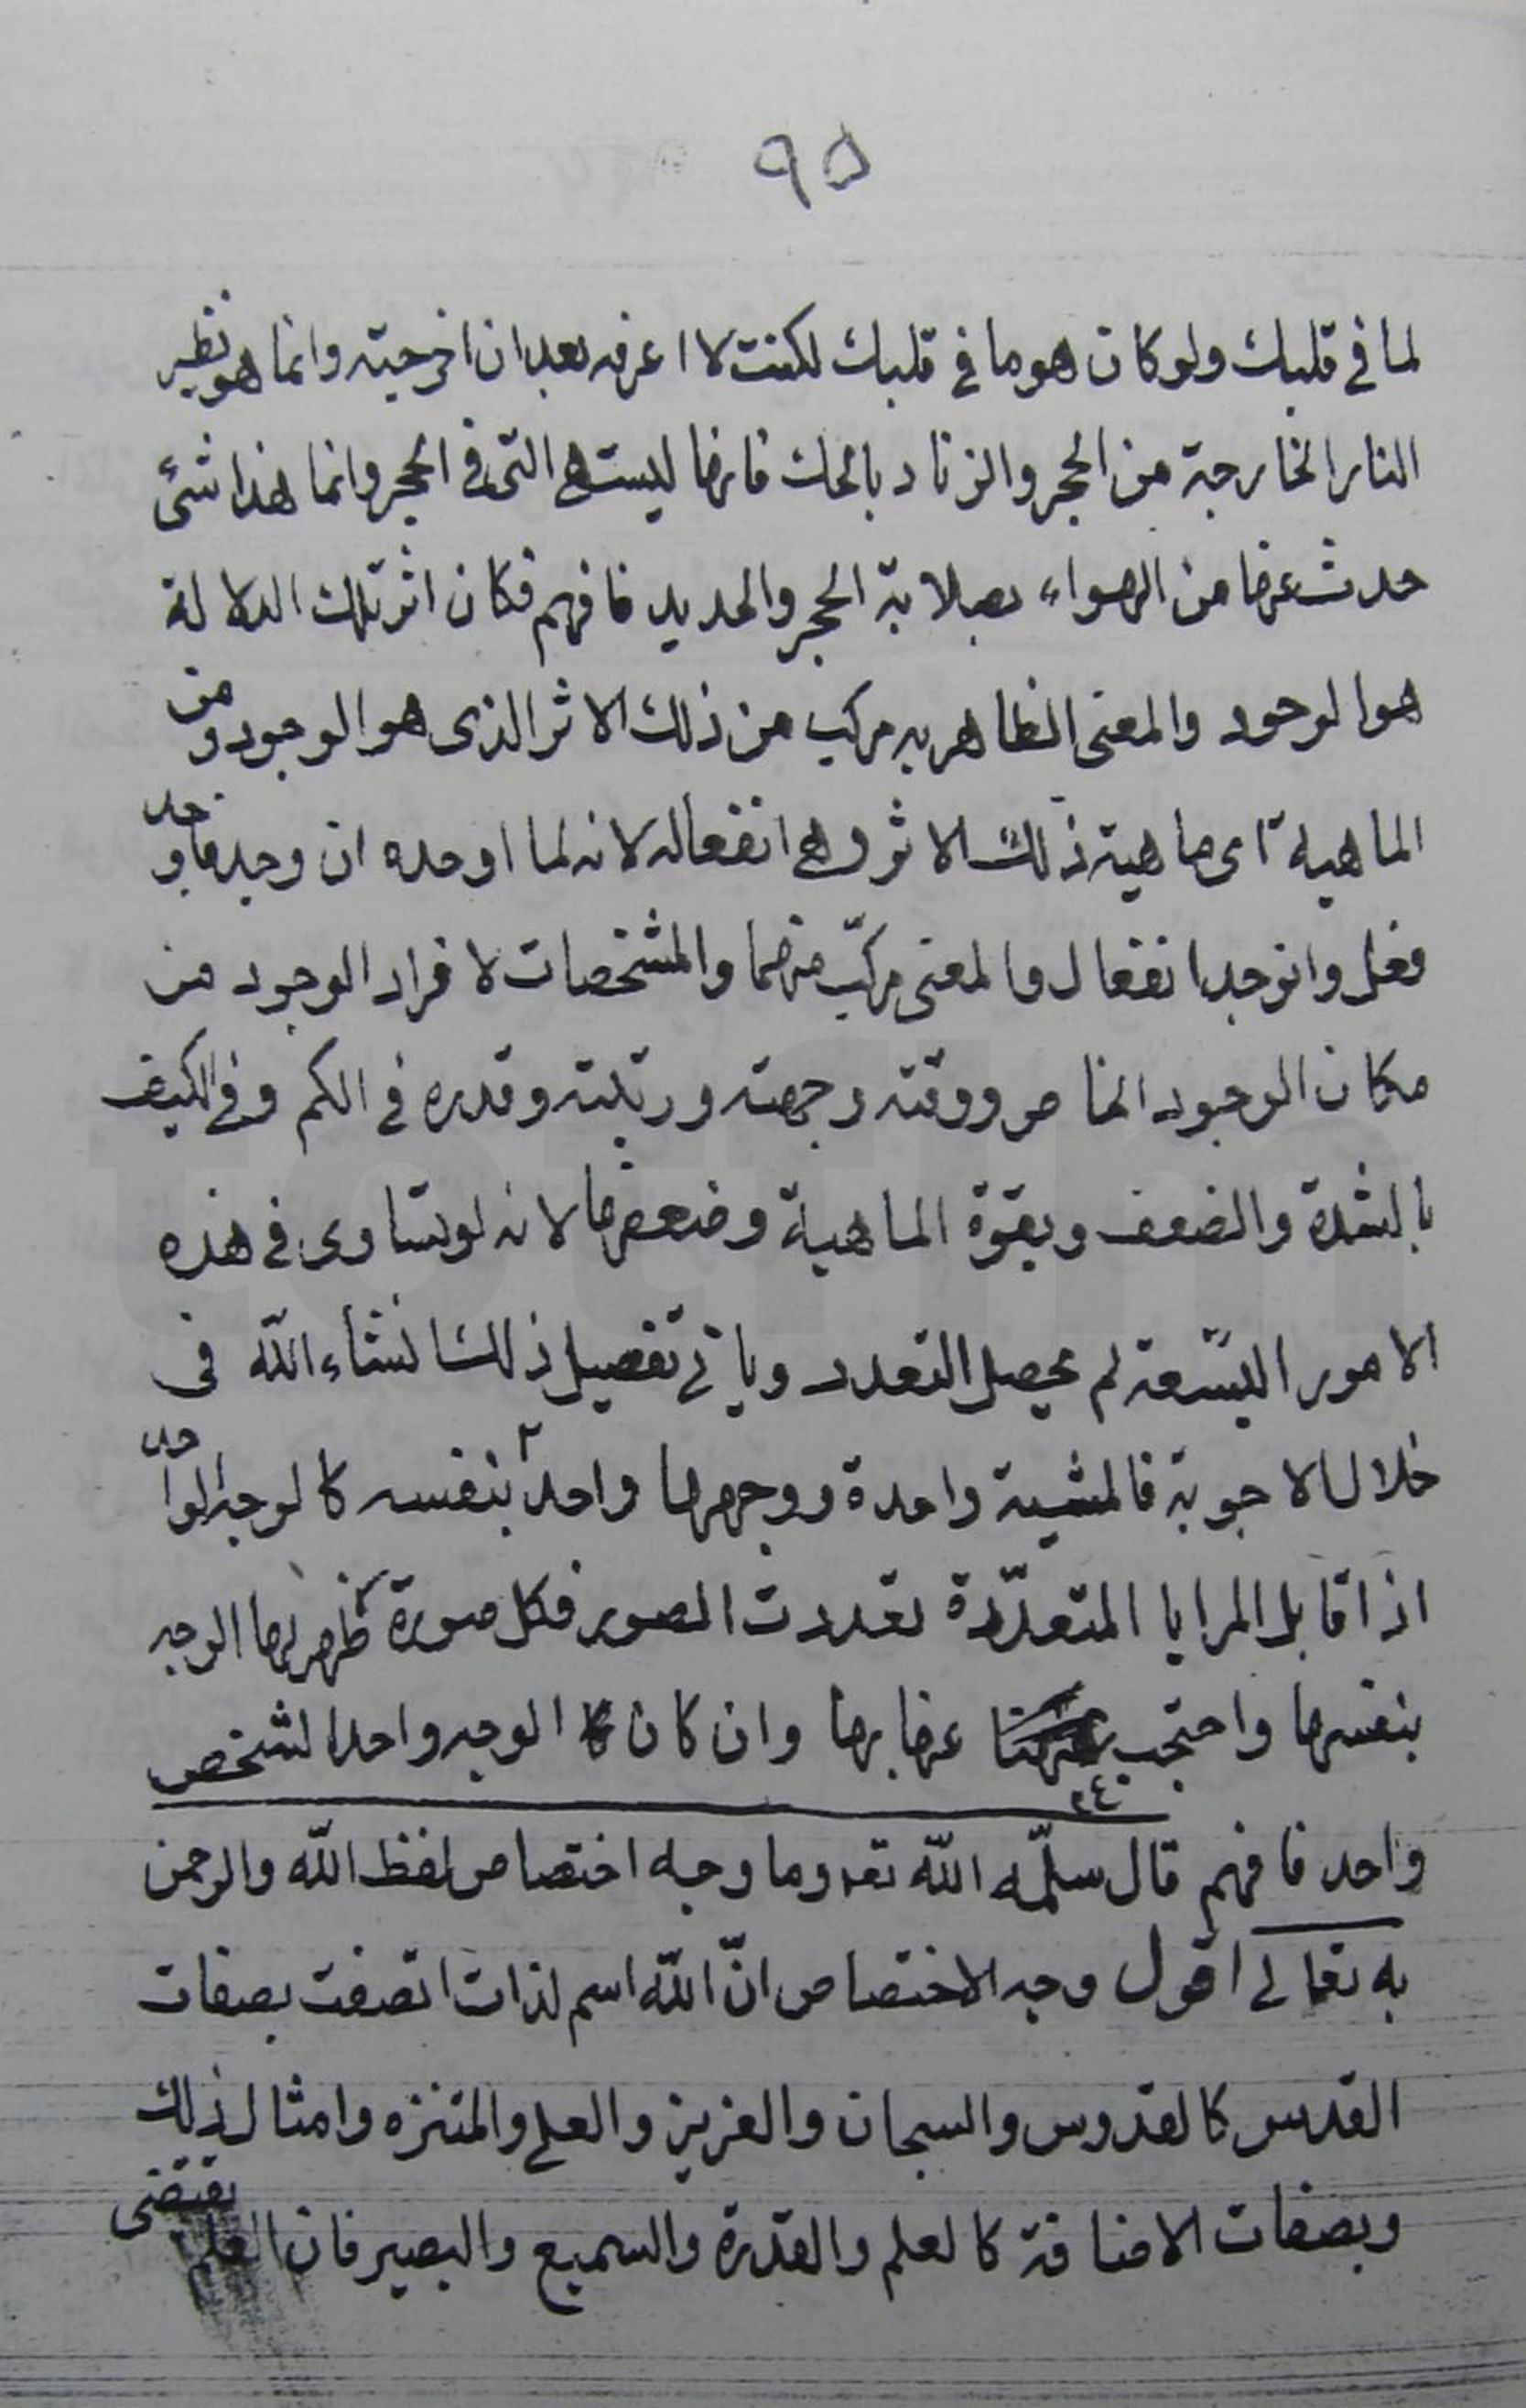 ٩٥
لما في قلبك ولو كان هو ما في قلبك لكنت لا اعرفه بعد ان اخرجته وانما هو نظير
النار الخارجة من الحجر والزناد بالحك فانها ليست هي التي في الحجر وانما هذا شئ
حدث عنها من الهواء بصلابة الحجر والحديد فافهم فكان اثر تلك الدلالة
هو الوجود والمعنى الظاهر به مركب من ذلك الاثر الذى هو الوجود ومن
الماهية اى ماهية ذلك الاثر وهي انفعاله لانه لما اوجده انوجد فاوجد
فعل وانوجد انفعال والمعنى مركّب منهما والمشخصات لافراد الوجود من
مكان الوجود الخاص ووقته وجهته ورتبته وقدره في الكم وفي الكيف
بالشدة والضعف وبقوة الماهية وضعفها لانه لو تساوى في هذه
الامور التسعة لم يحصل التعدد وياتي تفصيل ذلك انشاء الله في
خلال الاجوبة فالمشية واحدة ووجهها واحد ٢ بنفسه كالوجه الواحد
اذا قابل المرايا المتعدّدة تعددت الصور فكل صورة ظهر لها الوجه
بنفسها واحتجب عنها بها وان كان الوجه واحدا لشخص
واحد فافهم قال سلّمه الله تعه وما وجه اختصاص لفظ الله والرحمن
به تعالى اقول وجه الاختصاص انّ الله اسم لذات اتصفت بصفات
القدس كالقدوس والسبحان والعزيز والعلي والمتنزه وامثال ذلك
وبصفات الاضافة كالعلم والقدرة والسميع والبصير فان العلم يقتضى